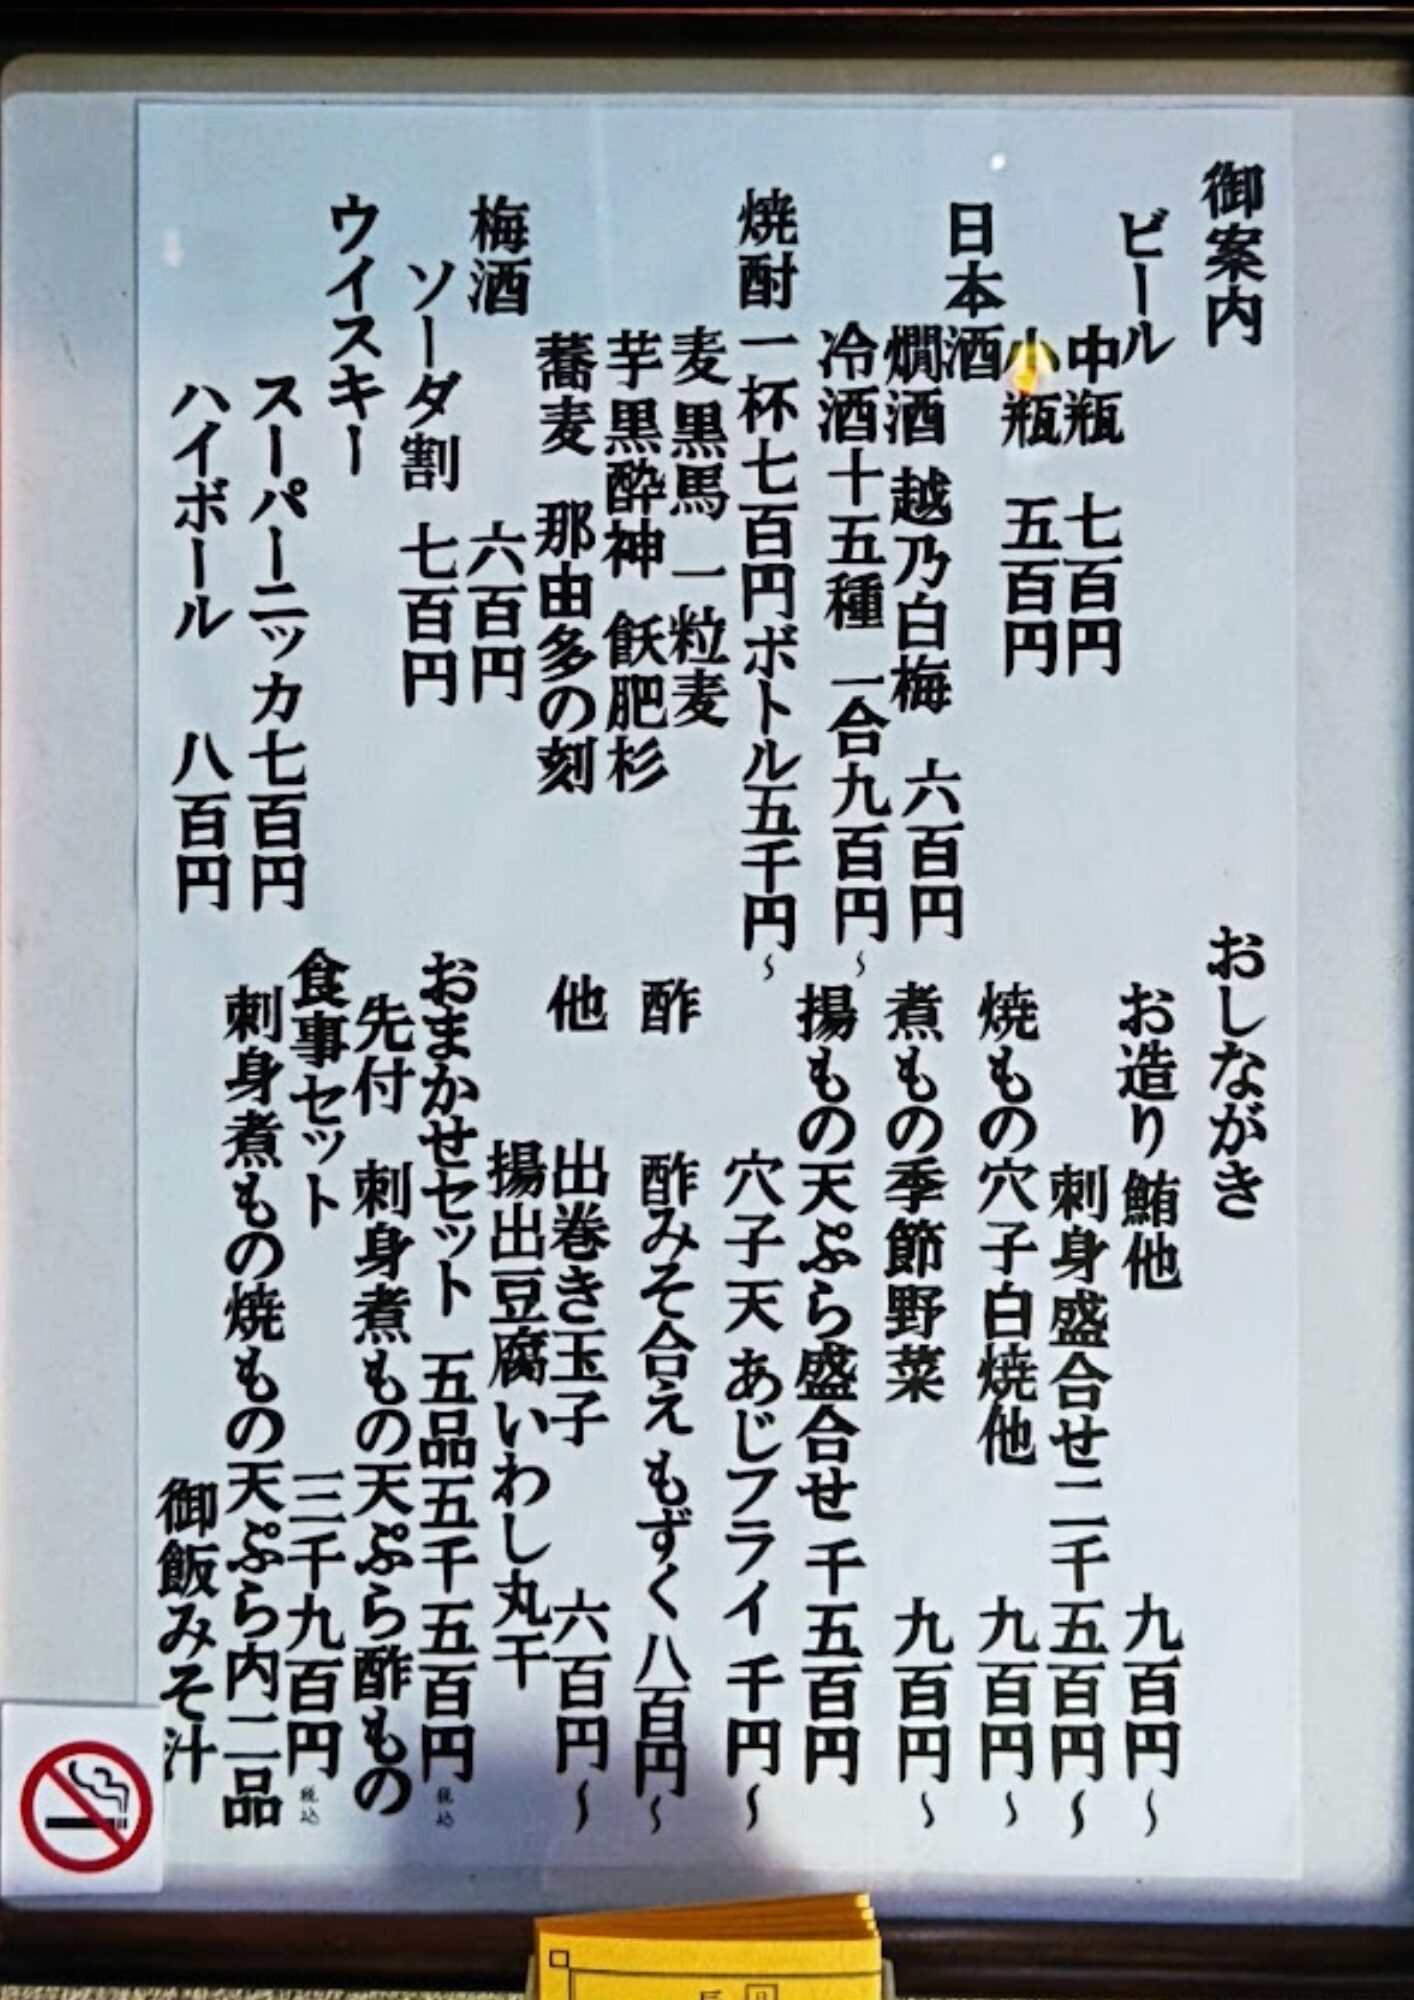 御案内
ビール
中瓶 七百円
小瓶 五百円
日本酒
燗酒 越乃白梅 六百円
冷酒十五種 一合九百円~
焼酎 一杯七百円ボトル五千円~
麦 黒馬 一粒麦
芋 黒酔神 飫肥杉
蕎麦 那由多の刻
梅酒 六百円
ソーダ割 七百円
ウイスキー
スーパーニッカ七百円
ハイボール 八百円
おしながき
お造り 鮪他 九百円~
刺身盛合せ二千五百円~
焼もの穴子白焼他 九百円~
煮もの季節野菜 九百円~
揚もの天ぷら盛合せ 千五百円
穴子天 あじフライ 千円~
酢 酢みそ合え もずく 八百円~
他 出巻き玉子 六百円~
揚出豆腐 いわし丸干
おまかせセット 五品五千五百円 税込
先付 刺身煮もの天ぷら酢もの
食事セット 三千九百円 税込
刺身煮もの焼もの天ぷら内二品
御飯みそ汁